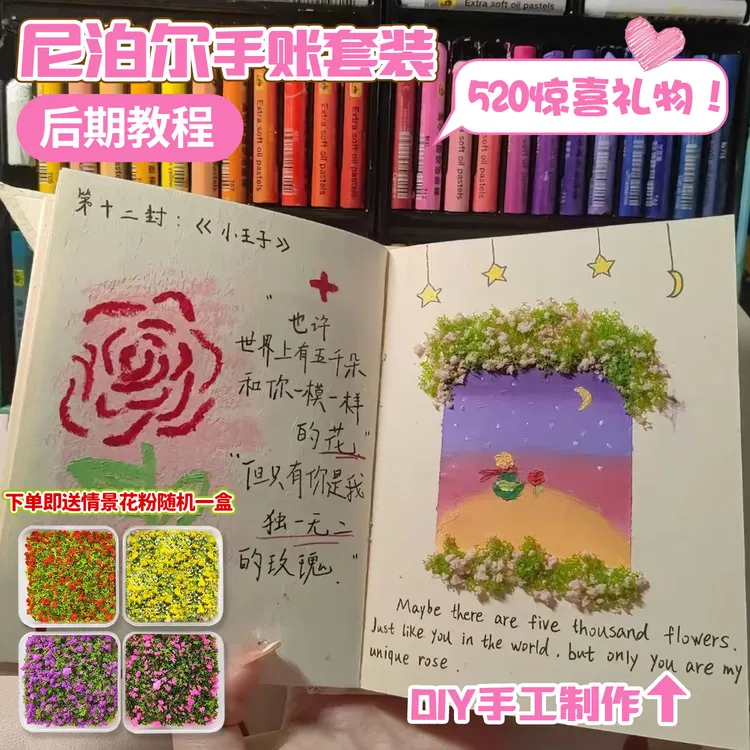 尼泊尔手账套装
后期教程
520惊喜礼物！
Extra soft oil pastels
Extra soft oil pastels
Extra soft oil pastels
Extra soft oil pastels
Extra soft oil pastels
第十二封：《小王子》
“也许
世界上有五千朵
和你一模一样
的花”
“但只有你是我
独一无二
的玫瑰.”
下单即送情景花粉随机一盒
Maybe there are five thousand flowers.
Just like you in the world. but only you are my
unique rose.
DIY手工制作